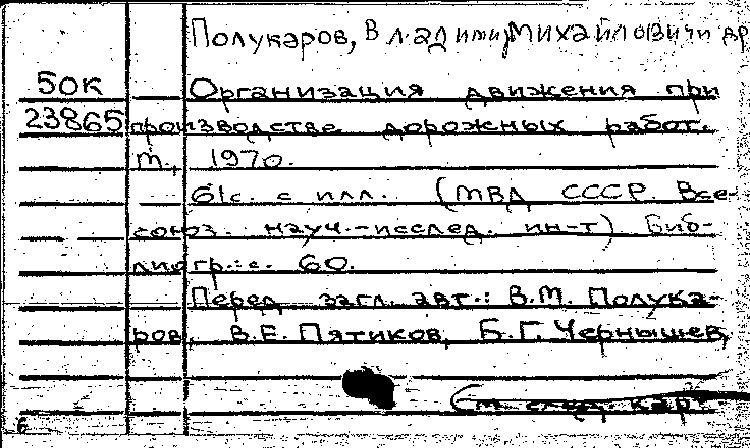 Полукаров, Владимир Михайлович и др
50К Организация движения при
23865 производстве дорожных работ.
М., 1970.
61с. с илл. (МВД СССР. Все-
союз. науч.-исслед. ин-т) Биб-
лиогр.: с. 60.
Перед загл. авт.: В.М. Полука-
ров, В.Е. Пятиков, Б.Г. Чернышев,
(См след. карт.
6